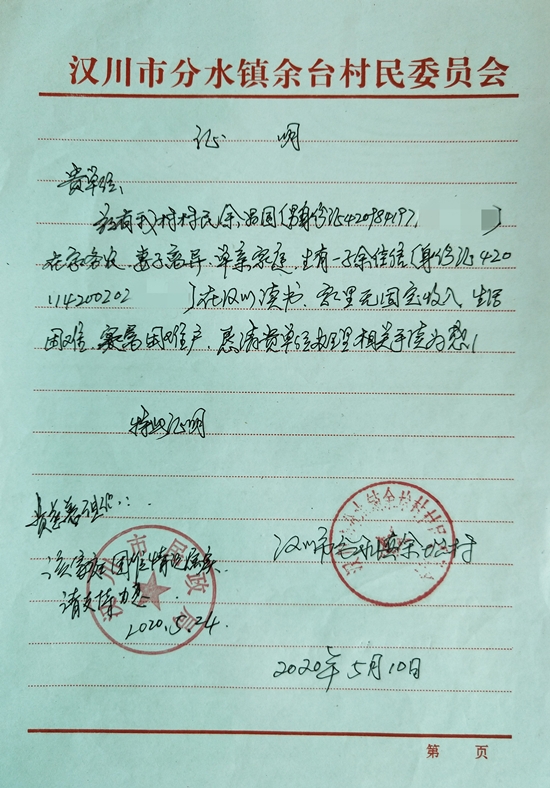 汉川市分水镇余台村民委员会
证 明
贵单位:
兹有我村村民余 国(身份证420984197
在家务农,妻子离异,单亲家庭,生有一子余佳信(身份证420
114200202 )在汉川读书,家里无固定收入,生活
困难,实属困难户,恳请贵单位办理相关手续为感!
特此证明
该家庭困难情况属实,
请支持为感
2020.5.24
汉川市民政局
汉川市分水镇余台村
2020年5月10日
第 页